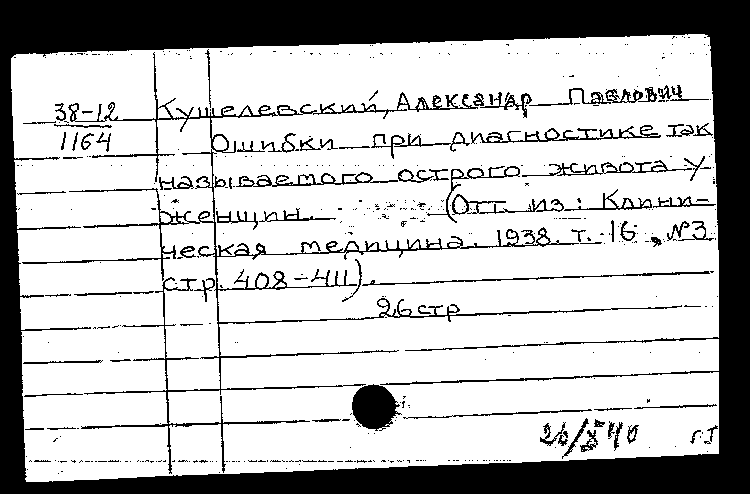 38-12
1164
Кушелевский, Александр Павлович
Ошибки при диагностике так
называемого острого живота у
женщин. (Отт. из: Клини-
ческая медицина. 1938. т. 16, №3
стр. 408-411).
26 стр